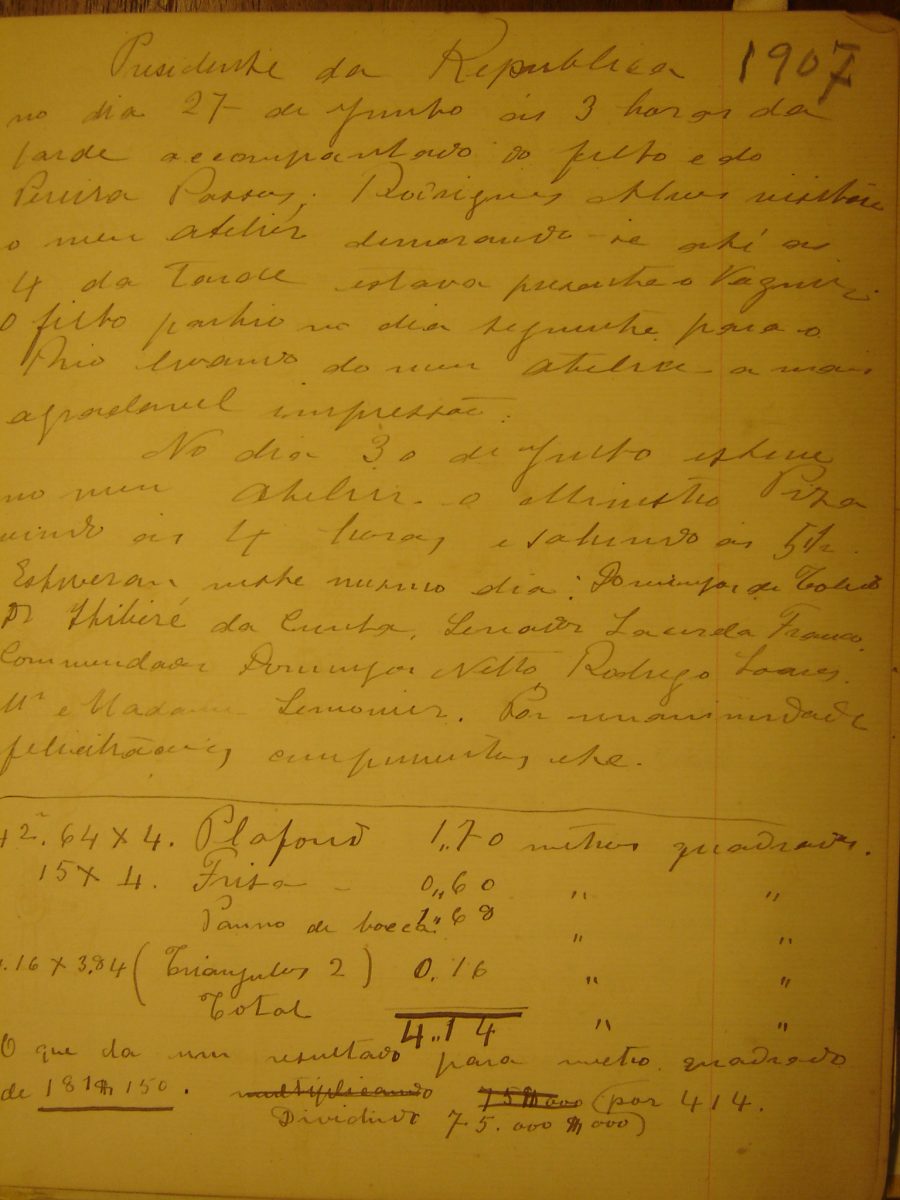 Presidente da Republica 1907
no dia 27 de Junho ás 3 horas da
tarde accompanhado do filho e do
Pereira Passos, Rodrigues Alves visitou
o meu atelier demorando-se até as
4 da tarde estava presente o
O filho partio no dia seguinte para o
Rio levando do meu atelier a mais
agradavel impressão.
No dia 30 de Junho esteve
no meu atelier o Ministro Piza
vindo ás 4 horas, e sahindo ás 5 1/2.
Estiveram neste mesmo dia: Domingos de Toledo
Dr da Cunha, Senador Lacerda Franco,
Commendador Domingos Netto, Rodrigo Soares,
Mr e Madame Lemonier. Por unanimidade
felicitações, cumprimentos, etc.
2.64 x 4. Plafond 1,,70 metros quadrados.
15 x 4. Friza - 0,,60 " "
Panno de bocca 1,,68 " "
.16 x 3.84 (Triangulos 2) 0.16 " "
Total 4,,14 " "
O que da um resultado para metro quadrado
de 181$150. multiplicando 75$000 (por 414.
Dividindo 75.000$000)